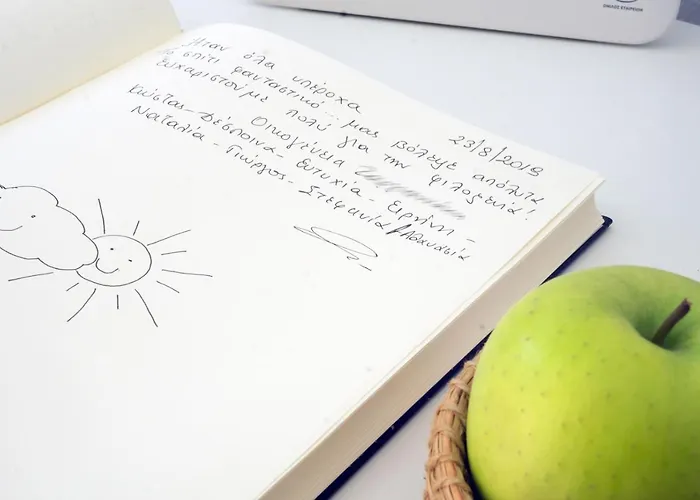 23/8/2018
Ήταν όλα υπέροχα
το σπίτι φανταστικό... μας βόλεψε απόλυτα
Ευχαριστούμε πολύ για την φιλοξενία!
Οικογένεια
Κώστας - Δέσποινα - Ευτυχία - Ειρήνη -
Ναταλία - Γιώργος - Στεφανία Αθανασία
ΟΜΙΛΟΣ ΕΤΑΙΡΕΙΩΝ